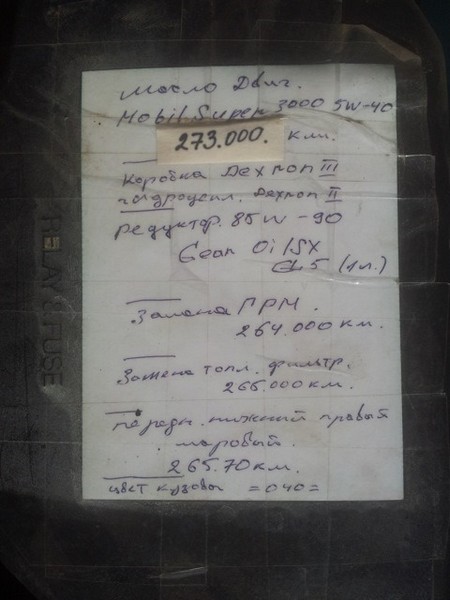 Масло Двиг.
Mobil Super 3000 5W-40
273.000. км.
Коробка Дехрон III
гидроцепл. Дехрон II
Редуктор. 85W-90
Gear Oil SX
GL5 (1л.)
Замена ГРМ.
264.000 км.
Замена топл. фильтр.
266.000 км.
передн. нижний правый
шаровый.
265.70 км.
цвет кузова =040=
RELAY & FUSE